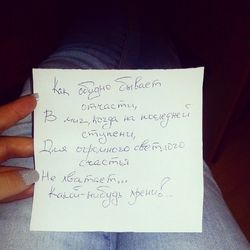 Как обидно бывает
отчасти,
В миг, когда на последней
ступени,
Для огромного светлого
счастья
Не хватает...
Какой-нибудь хрени!..